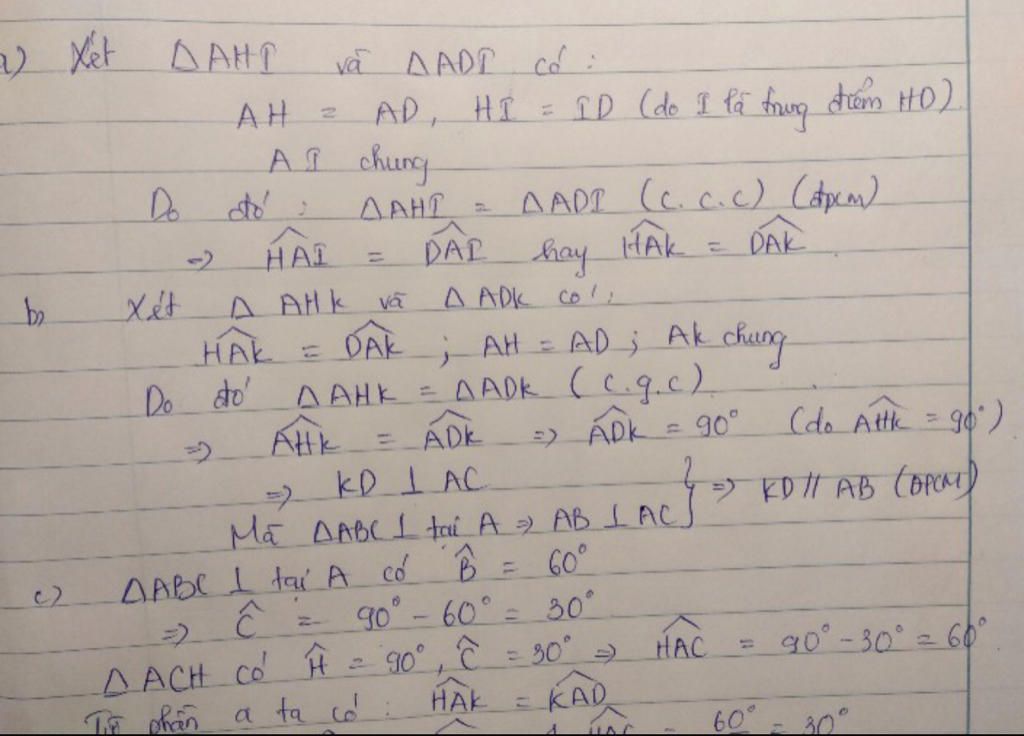 a) Xét ΔAHI và ΔADI có :
AH = AD, HI = ID (do I là trung điểm HD)
AI chung
Do đó : ΔAHI = ΔADI (c.c.c) (đpcm)
=> HAI = DAI hay HAK = DAK
b) Xét Δ AHK và Δ ADK có :
HAK = DAK ; AH = AD ; AK chung
Do đó ΔAHK = ΔADK (c.g.c)
=> AHK = ADK => ADK = 90° (do AHK = 90°)
=> KD ⊥ AC
Mà ΔABC ⊥ tại A => AB ⊥ AC } => KD // AB (ĐPCM)
c) ΔABC ⊥ tại A có B̂ = 60°
=> Ĉ = 90° - 60° = 30°
ΔACH có Ĥ = 90°, Ĉ = 30° => HAC = 90° - 30° = 60°
Từ phần a ta có : HAK = KAD
HAC = 60° = 30°